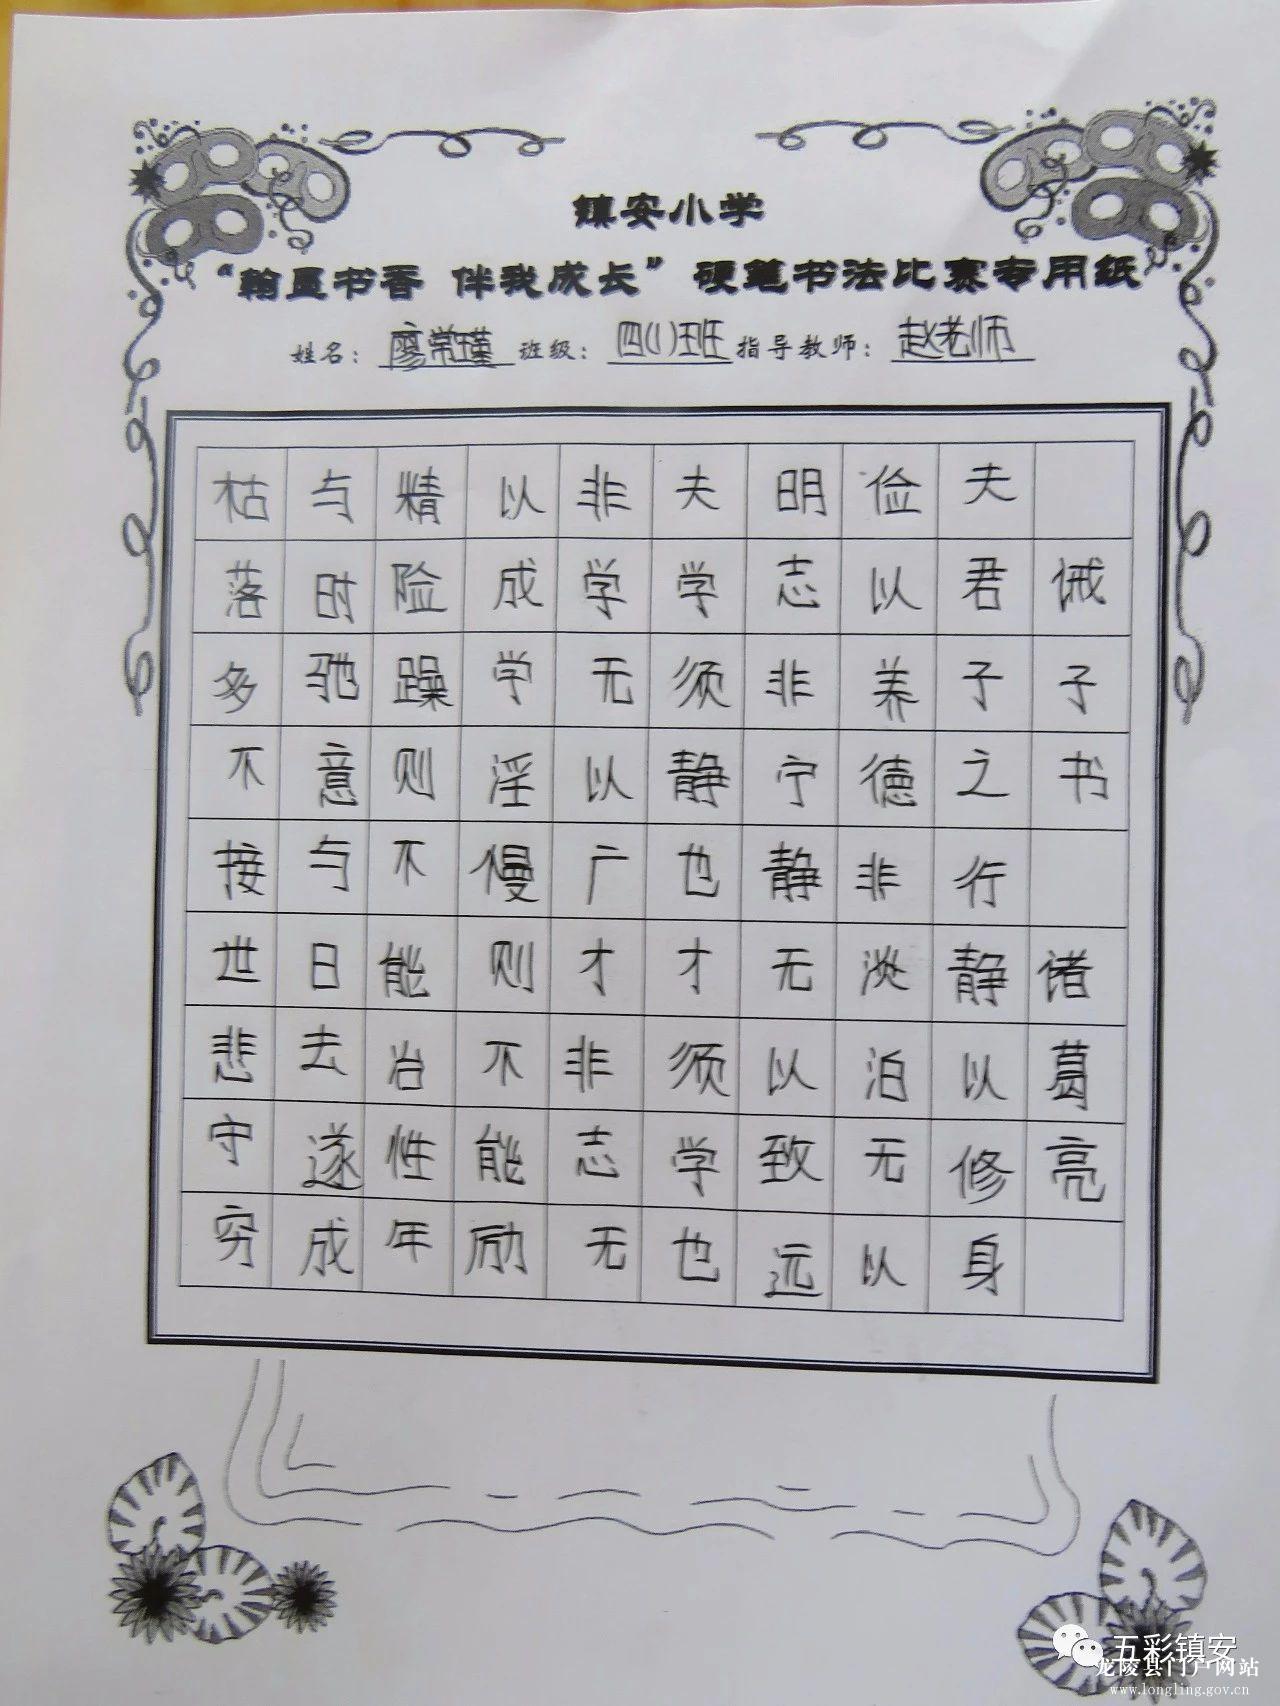 镇安小学
“翰墨书香 伴我成长”硬笔书法比赛专用纸
姓名：廖常瑾 班级：四（1）班 指导教师：赵老师
诫子书 诸葛亮
夫君子之行静以修身
俭以养德非淡泊无以
明志非宁静无以致远
夫学须静也才须学也
非学无以广才非志无
以成学淫慢则不能励
精险躁则不能冶性年
与时驰意与日去遂成
枯落多不接世悲守穷
五彩镇安
龙陵县门户网站
www.longling.gov.cn